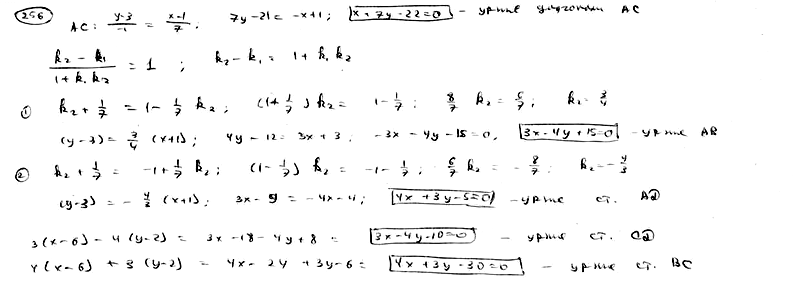 256
AC: \frac{y-3}{-1} = \frac{x-1}{7} ; 7y-21 = -x+1 ; x+7y-22=0 - ур-ние диагонали AC
\frac{k_2-k_1}{1+k_1k_2} = 1 ; k_2-k_1 = 1+k_1k_2
① k_2+\frac{1}{7} = 1-\frac{1}{7}k_2 ; (1+\frac{1}{7})k_2 = 1-\frac{1}{7} ; \frac{8}{7}k_2 = \frac{6}{7} ; k_2 = \frac{3}{4}
(y-3) = \frac{3}{4}(x+1) ; 4y-12 = 3x+3 ; -3x-4y-15=0, 3x-4y+15=0 - ур-ние AB
② k_2+\frac{1}{7} = -1+\frac{1}{7}k_2 ; (1-\frac{1}{7})k_2 = -1-\frac{1}{7} ; \frac{6}{7}k_2 = -\frac{8}{7} ; k_2 = -\frac{4}{3}
(y-3) = -\frac{4}{3}(x+1) ; 3x-9 = -4x-4 ; 4x+3y-5=0 - ур-ние ст. AD
3(x-6)-4(y-2) = 3x-18-4y+8 = 3x-4y-10=0 - ур-ние ст. CD
4(x-6)+3(y-2) = 4x-24+3y-6 = 4x+3y-30=0 - ур-ние ст. BC